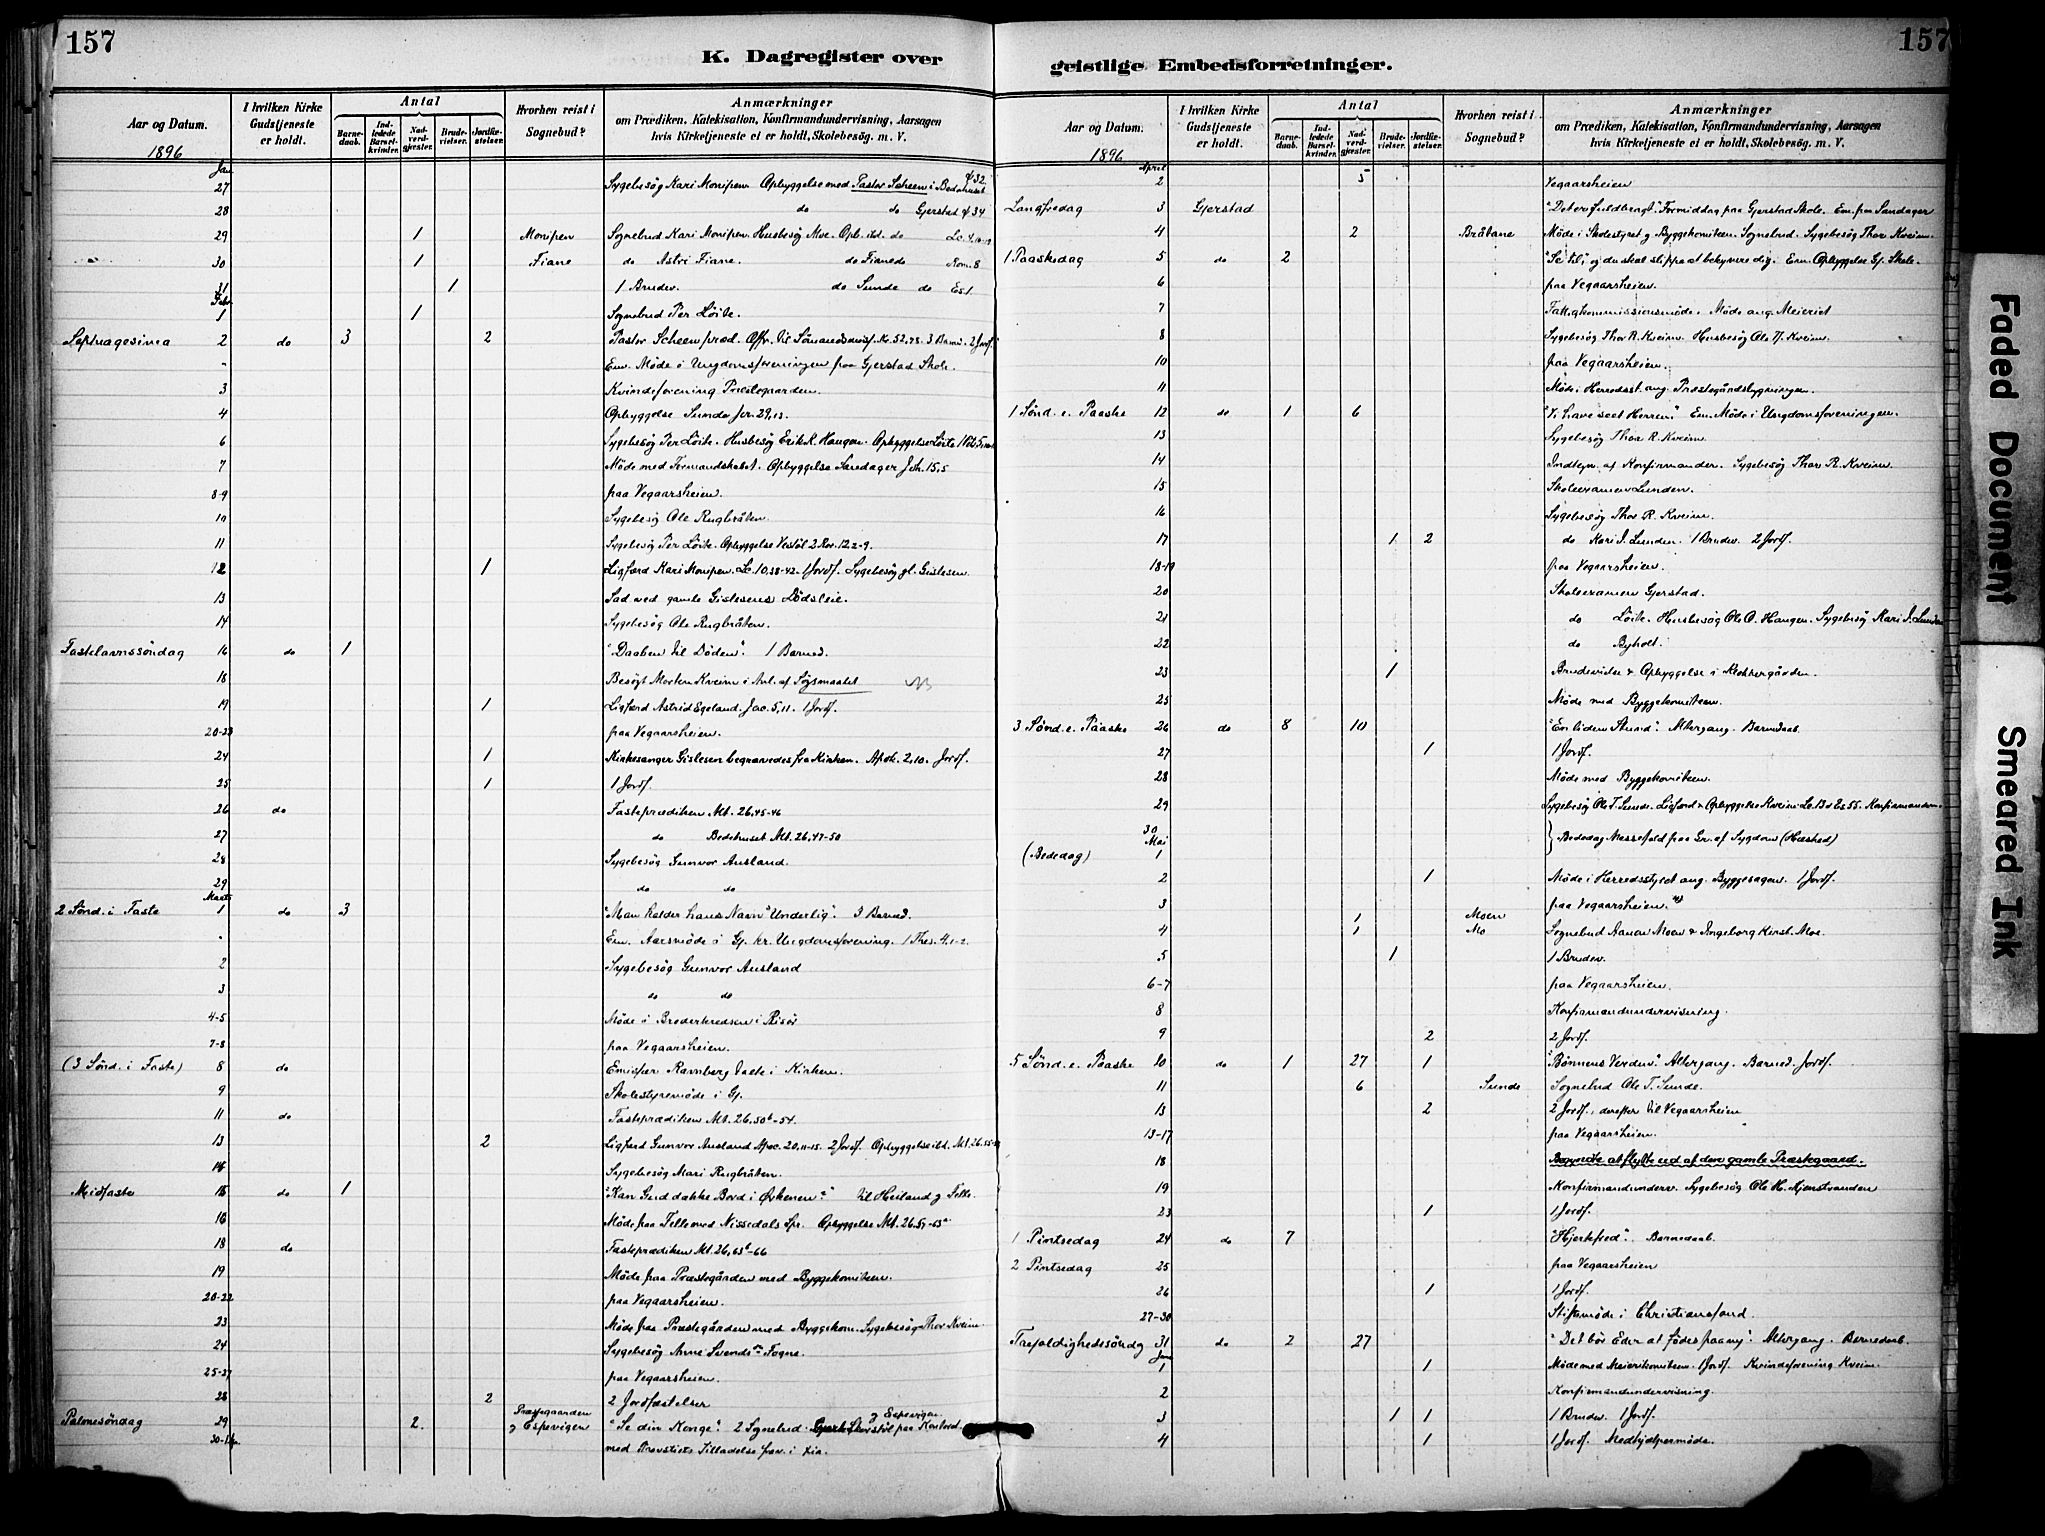 157
K. Dagregister over
Aar og Datum.
I hvilken Kirke Gudstjeneste er holdt.
Antal
Barnedaab.
Indledede Barselkvinder.
Nadverdgjester.
Brudevielser.
Jordfæstelser.
Hvorhen reist i Sognebud?
Anmærkninger
om Prædiken, Katekisation, Konfirmandundervisning, Aarsagen
hvis Kirketjeneste ei er holdt, Skolebesøg. m. V.
1896
Jan
27 Sygebesøg Kari Monipen Opbyggelse med Pastor Scheen i Bedehuset ψ 32
28 do do Gjerstad ψ 34
29 1 Monipen Sognebud Kari Monipen. Husbesøg Moe. Opb. ibd. do Lc.
30 1 Fiane do Astri Fiane. do Fiane do Rom. 8
31 1 1 Brudev. do Sunde do Es 1.
Febr
1 1 Sognebud Per Löite.
Septuagesima 2 do 3 2 Pastor Scheen præd. Offr. til Sömandsmis. Kr. 52,48. 3 Barnd. 2 Jordf.
" Em. Møde i Ungdomsforeningen paa Gjerstad Skole.
3 Kvindeforening Præstegaarden.
4 Opbyggelse Sunde Jer. 29,13.
6 Sygebesøg Per Löite. Husbesøg Erik R. Haugen. Opbyggelse Löite
7 Møde med Formandskabet. Opbyggelse Sandager Joh. 15,5
8-9 paa Vegaarsheien.
10 Sygebesøg Ole Rugbråten.
11 Sygebesøg Per Löite. Opbyggelse Vestöl 2 Kor. 12,2-9.
12 1 Ligfærd Kari Monipen. Lc. 10,38-42. 1 Jordf. Sygebesøg gl. Gislesen
13 Sad ved gamle Gislesens Dödsleie.
14 Sygebesøg Ole Rugbråten.
Fastelavnssöndag 16 do 1 "Daaben til Döden". 1 Barned.
18 Besøgt Morten Kveim i Anl. af Søgsmaalet
19 1 Ligfærd Astrid Egeland. Jac. 5,11. 1 Jordf.
20-23 paa Vegaarsheien.
24 1 Kirkesanger Gislesen begravedes fra Kirken. Apok. 2,10. Jordf.
25 1 1 Jordf.
26 do Fasteprædiken Mt. 26,45-46
27 do Bedehuset Mt. 26,47-50
28 Sygebesøg Gunvor Ausland.
29 do do
Marts
2 Sönd. i Faste 1 do 3 "Man kalder hans Navn Underlig". 3 Barned.
" Em. Aarsmøde i Gj. kr. Ungdomsforening. 1 Thes. 4,1-2.
2 Sygebesøg Gunvor Ausland
3 do do
4-5 Møde i Broderkredsen i Risör
7-8 paa Vegaarsheien.
(3 Sönd. i Faste) 8 do Emissær Ramberg talte i Kirken.
9 Skolestyremøde i Gj.
11 do Fasteprædiken Mt. 26,50b-54.
13 2 Ligfærd Gunvor Ausland Apoc. 20,11-15. 2 Jordf. Opbyggelse ibd. Mt. 26.55-
14 Sygebesøg Mari Rugbråten.
Midfaste 15 do 1 "Kan Gud dække Bord i Ørkenen?" til Heiland
16 Møde paa Felle med Nissedals Spr. Opbyggelse Mt. 26.57-63a
18 do Fasteprædiken Mt. 26,63b-66
19 Møde paa Præstegården med Byggekomiteen.
20-22 paa Vegaarsheien.
23 Møde paa Præstegården med Byggekom. Sygebesøg Thor Kveim.
24 Sygebesøg Anne Svends Fogne.
25-27 paa Vegaarsheien.
28 2 2 Jordfæstelser
Palmesöndag 29 2. Præstegaarden og Espevigen "Se din Konge". 2 Sognebud. og Espevigen
30-1 med Provstiets Tilladelse
157
geistlige Embedsforretninger.
Aar og Datum.
I hvilken Kirke Gudstjeneste er holdt.
Antal
Barnedaab.
Indledede Barselkvinder.
Nadverdgjester.
Brudevielser.
Jordfæstelser.
Hvorhen reist i Sognebud?
Anmærkninger
om Prædiken, Katekisation, Konfirmandundervisning, Aarsagen
hvis Kirketjeneste ei er holdt, Skolebesøg. m. V.
1896
April
2 5 Vegaarsheien
Langfredag 3 Gjerstad "Det er fuldbragt". Formiddag paa Gjerstad Skole. Em. paa Sandager
4 2 Bråtane Møde i Skolestyret og Byggekomiteen. Sognebud. Sygebesøg Thor Kveim.
1 Paaskedag 5 do 2 "Se til", og du skal slippe at bekymre dig. Em. Opbyggelse Gj. Skole.
6 paa Vegaarsheien.
7 Fattigkommissionsmøde. Møde ang. Meieriet
8 Sygebesøg Thor R. Kveim. Husbesøg Ole Kveim.
10 paa Vegaarsheien.
11 Møde i Herredsst. ang. Præstegårdsbygningen.
1 Sönd. e. Paaske 12 do 1 6 "Vi have seet Herren". Em. Møde i Ungdomsforeningen.
13 Sygebesøg Thor R. Kveim.
14 Indtegn. af Konfirmander. Sygebesøg Thor R. Kveim.
15 Skoleexamen Lunden.
16 Sygebesøg Thor R. Kveim.
17 1 2 do Kari J. Lunden. 1 Brudev. 2 Jordf.
18-19 paa Vegaarsheien.
20 Skoleexamen Gjerstad.
21 do Löite. Husbesøg Ole O. Haugen. Sygebesøg Kari J. Lunden
22 do Byholt.
23 1 Brudevielse & Opbyggelse i Klokkergården.
25 Møde med Byggekomiteen.
3 Sönd. e. Paaske 26 do 8 10 "En liden Stund". Altergang. Barnedaab.
27 1 1 Jordf.
28 Møde med Byggekomiteen.
29 Sygebesøg Ole T. Sunde. Ligfærd & Opbyggelse Kveim Es 55. Konfirmanderne
30
Mai
(Bededag) 1 Bededag Messefald paa Gr. af Sygdom (Hæshed)
2 1 Møde i Herredsstyret ang. Byggesagen. 1 Jordf.
3 1 Moen paa Vegaarsheien.
4 1 Mo Sognebud Aanon Moen & Ingeborg Kirst. Moe.
5 1 1 Brudev.
6-7 paa Vegaarsheien.
8 Konfirmandundervisning.
9 2 2 Jordf.
5 Sönd. e. Paaske 10 do 1 27 1 "Bønnens Verden". Altergang. Barned. Jordf.
11 6 Sunde Sognebud Ole T. Sunde.
13 2 2 Jordf., derefter til Vegaarsheien
13-17 paa Vegaarsheien.
18 Begyndte at flytte ud af den gamle Præstegaard.
19 Konfirmandunderv. Sygebesøg Ole H. Mjenstranden
23 1 1 Jordf.
1 Pintsedag 24 do 7 "Hjertefred". Barnedaab.
2 Pintsedag 25 paa Vegaarsheien
26 1 1 Jordf.
27-30 Stiftsmøde i Christianssand.
Trefoldighedssöndg 31 do 2 27 "Det bör Eder at födes paany". Altergang. Barnedaab.
Juni
1 1 Møde med Meierikomiteen. 1 Jordf. Kvindeforening Kveim.
2 Konfirmandundervisning.
3 1 1 1 Brudev. 1 Jordf.
4 1 1 Jordf. Medhjælpermøde.
Faded Document
Smeared Ink